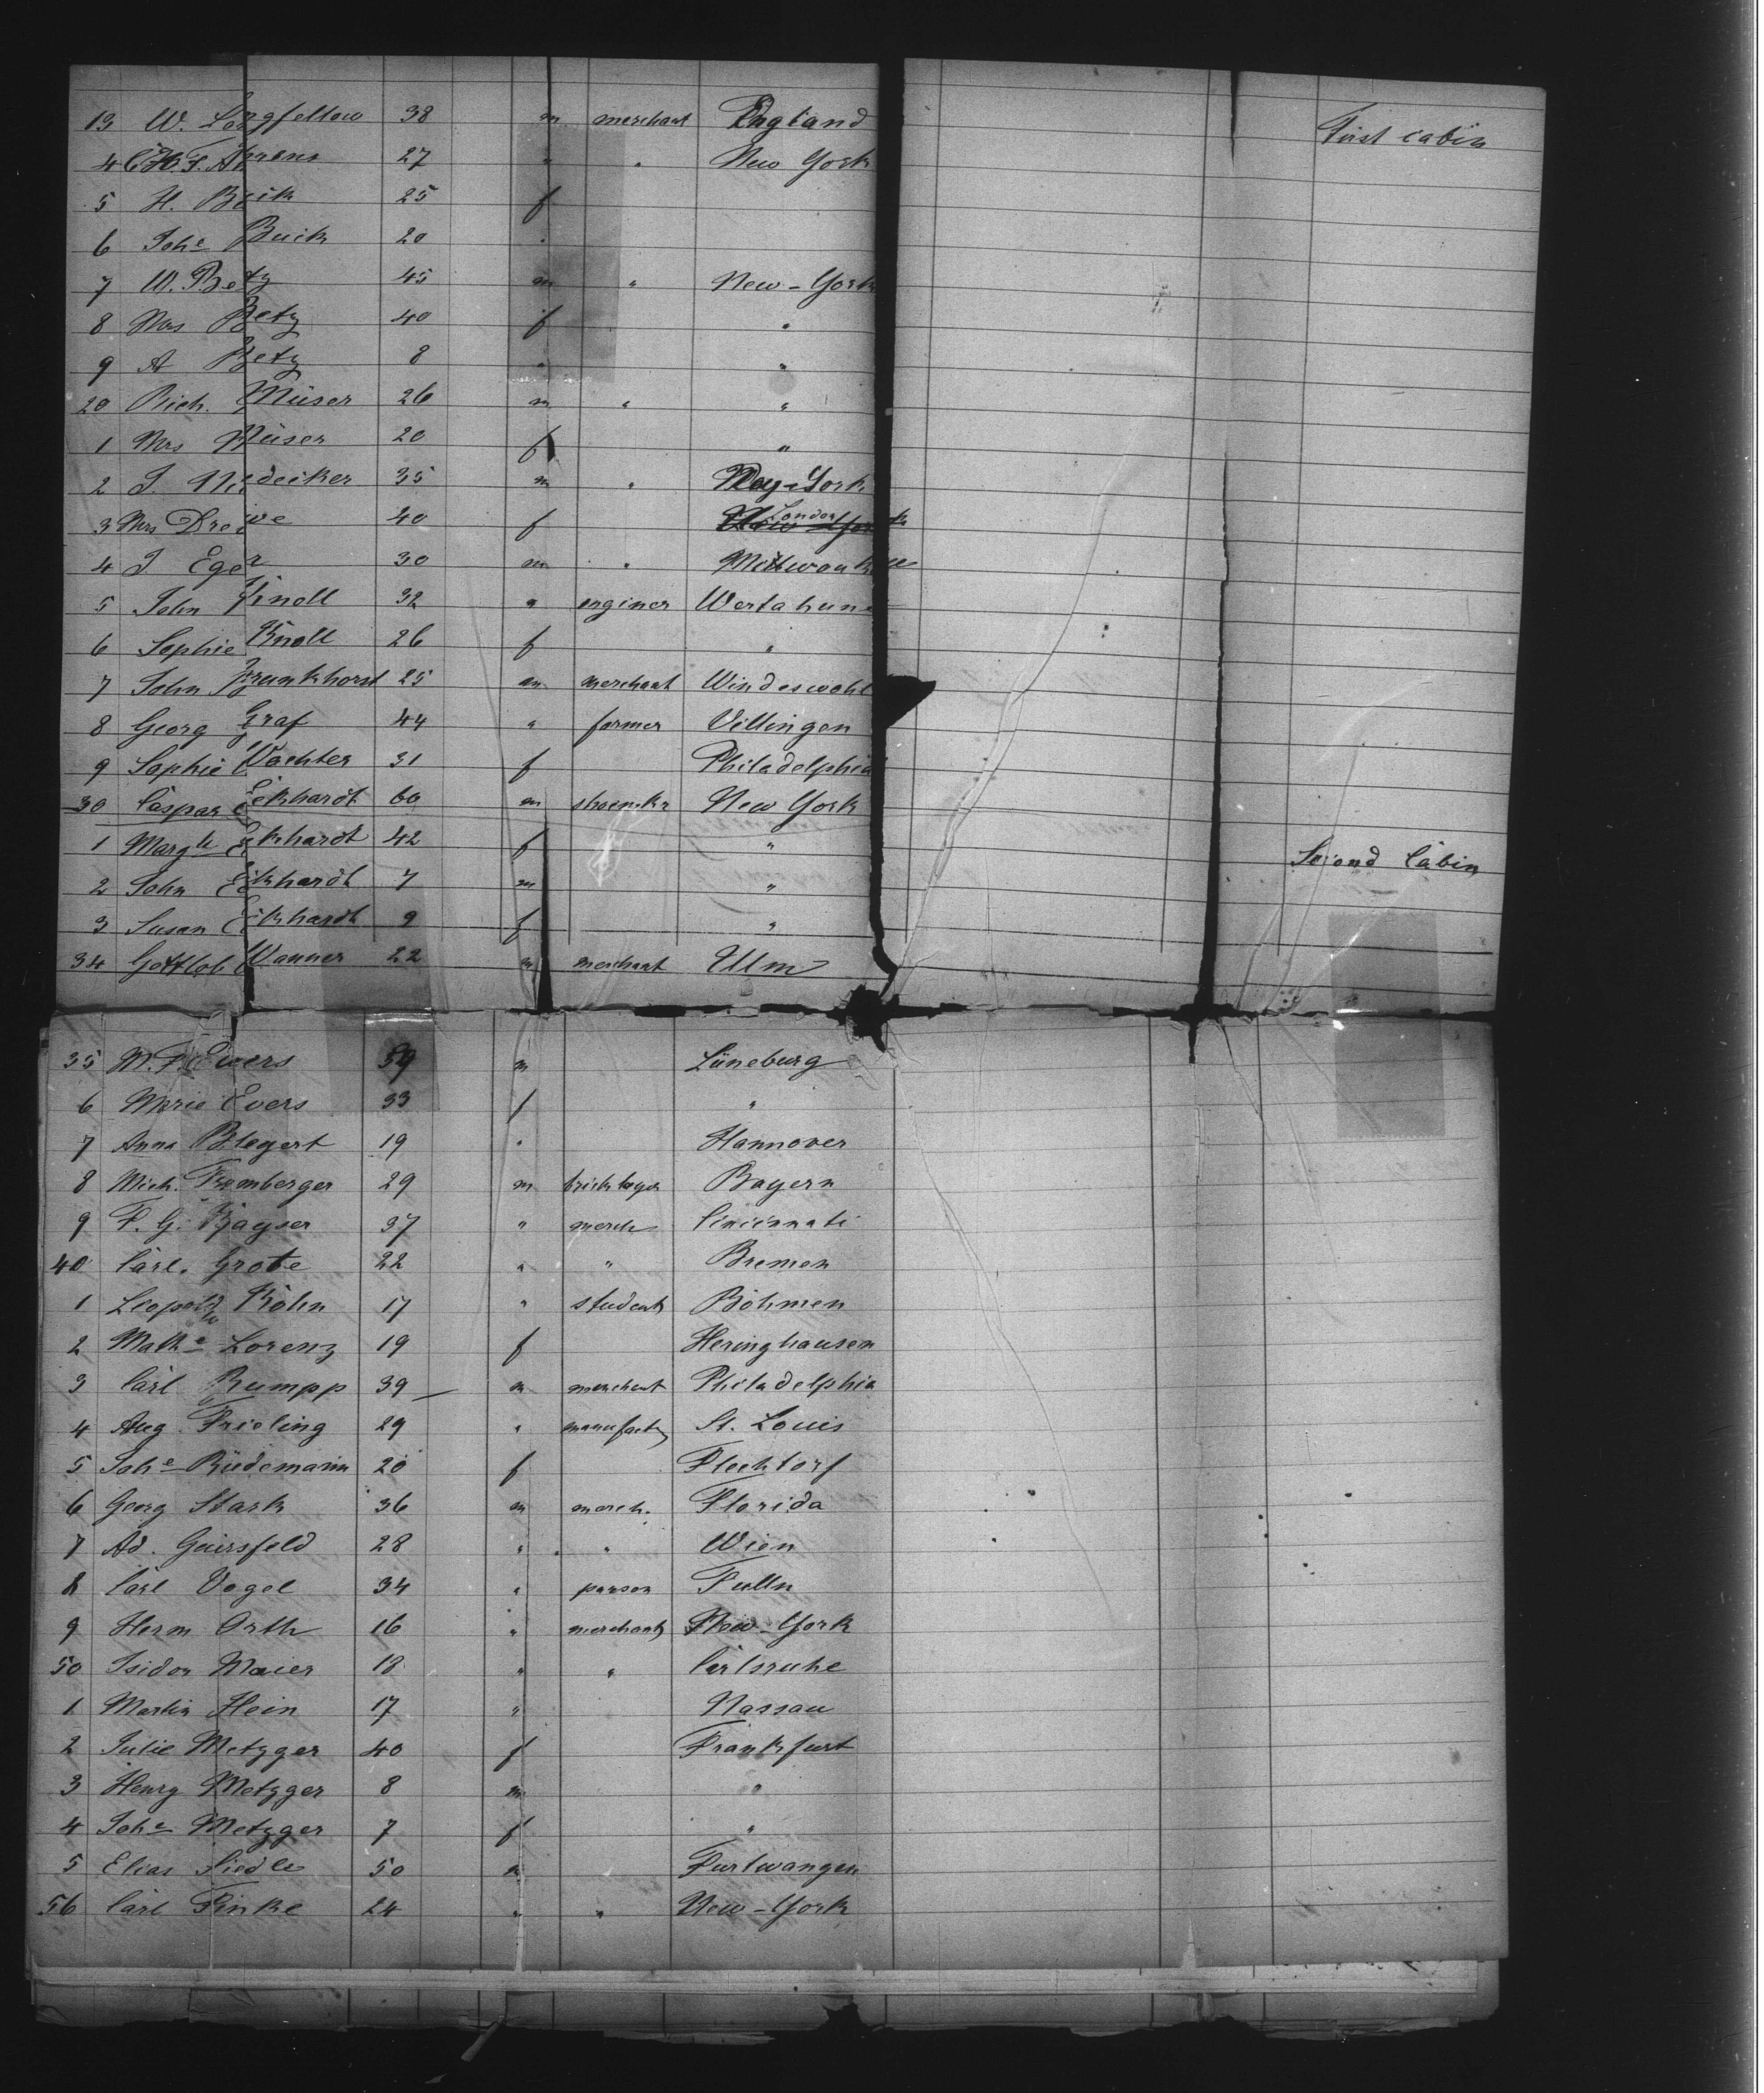 13 W. Longfellow 38 m merchant England First cabin
4 C.H.F. Ahrens 27 " " New York
5 H. Buck 25 f
6 Johe Buck 20 "
7 W. Betz 45 m " New-York
8 Mrs Betz 40 f "
9 A Betz 8 " "
20 Rich. Müser 26 m " "
1 Mrs Müser 20 f "
2 J. decker 35 m " York
3 Mrs Drewe 40 f London
4 J Eger 30 m " Milwaukee
5 John Knoll 32 " enginer
6 Sophie Knoll 26 f "
7 John Brunkhorst 25 m merchant
8 Georg Graf 44 " farmer Villingen
9 Sophie Wachter 31 f Philadelphia
30 Caspar Eckhardt 60 m shoemkr New York
1 Margte Eckhardt 42 f " Second Cabin
2 John Eckhardt 7 m "
3 Susan Eckhardt 9 f "
34 Gottlob Wanner 22 m merchant Ulm
35 M. F. Ewers 59 m Lüneburg
6 Marie Evers 33 f "
7 Anna Blegert 19 " Hannover
8 Mich. Fromberger 29 m bricklayer Bayern
9 F. G. Kayser 37 " merch Cincinnati
40 Carl. Grote 22 " " Bremen
1 Leopold Köhn 17 " student Böhmen
2 Mathe Lorenz 19 f Heringhausen
3 Carl Rumpp 39 m merchant Philadelphia
4 Aug. Frieling 29 " manufact St. Louis
5 Johe Rüdemann 20 f Flechtorf
6 Georg Stark 36 m merch. Florida
7 Ad. Gairsfeld 28 " " Wien
8 Carl Vogel 34 " parson Tulln
9 Herm Orth 16 " merchant New-York
50 Isidor Maier 18 " " Carlsruhe
1 Martin Hein 17 " Nassau
2 Julie Metzger 40 f Frankfurt
3 Henry Metzger 8 m "
4 Johe Metzger 7 f "
5 Elias Siedle 50 m " Furtwangen
56 Carl Finke 24 " " New-York